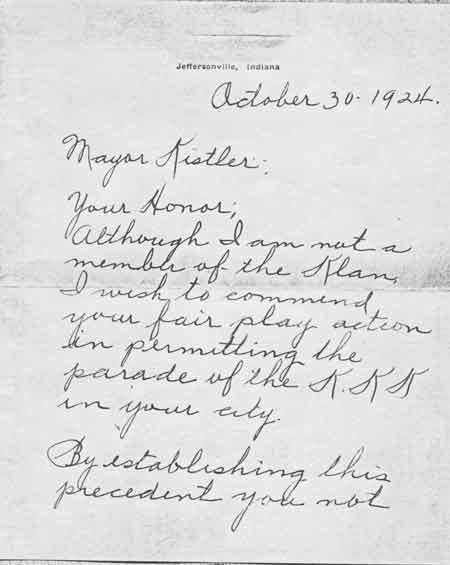 Jeffersonville, Indiana
October 30 - 1924.
Mayor Kistler:
Your Honor;
Although I am not a
member of the Klan,
I wish to commend
your fair play action
in permitting the
parade of the K.K.K
in your city.
By establishing this
precedent you not